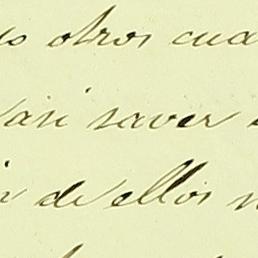 otros cua
asi saver
de ellos